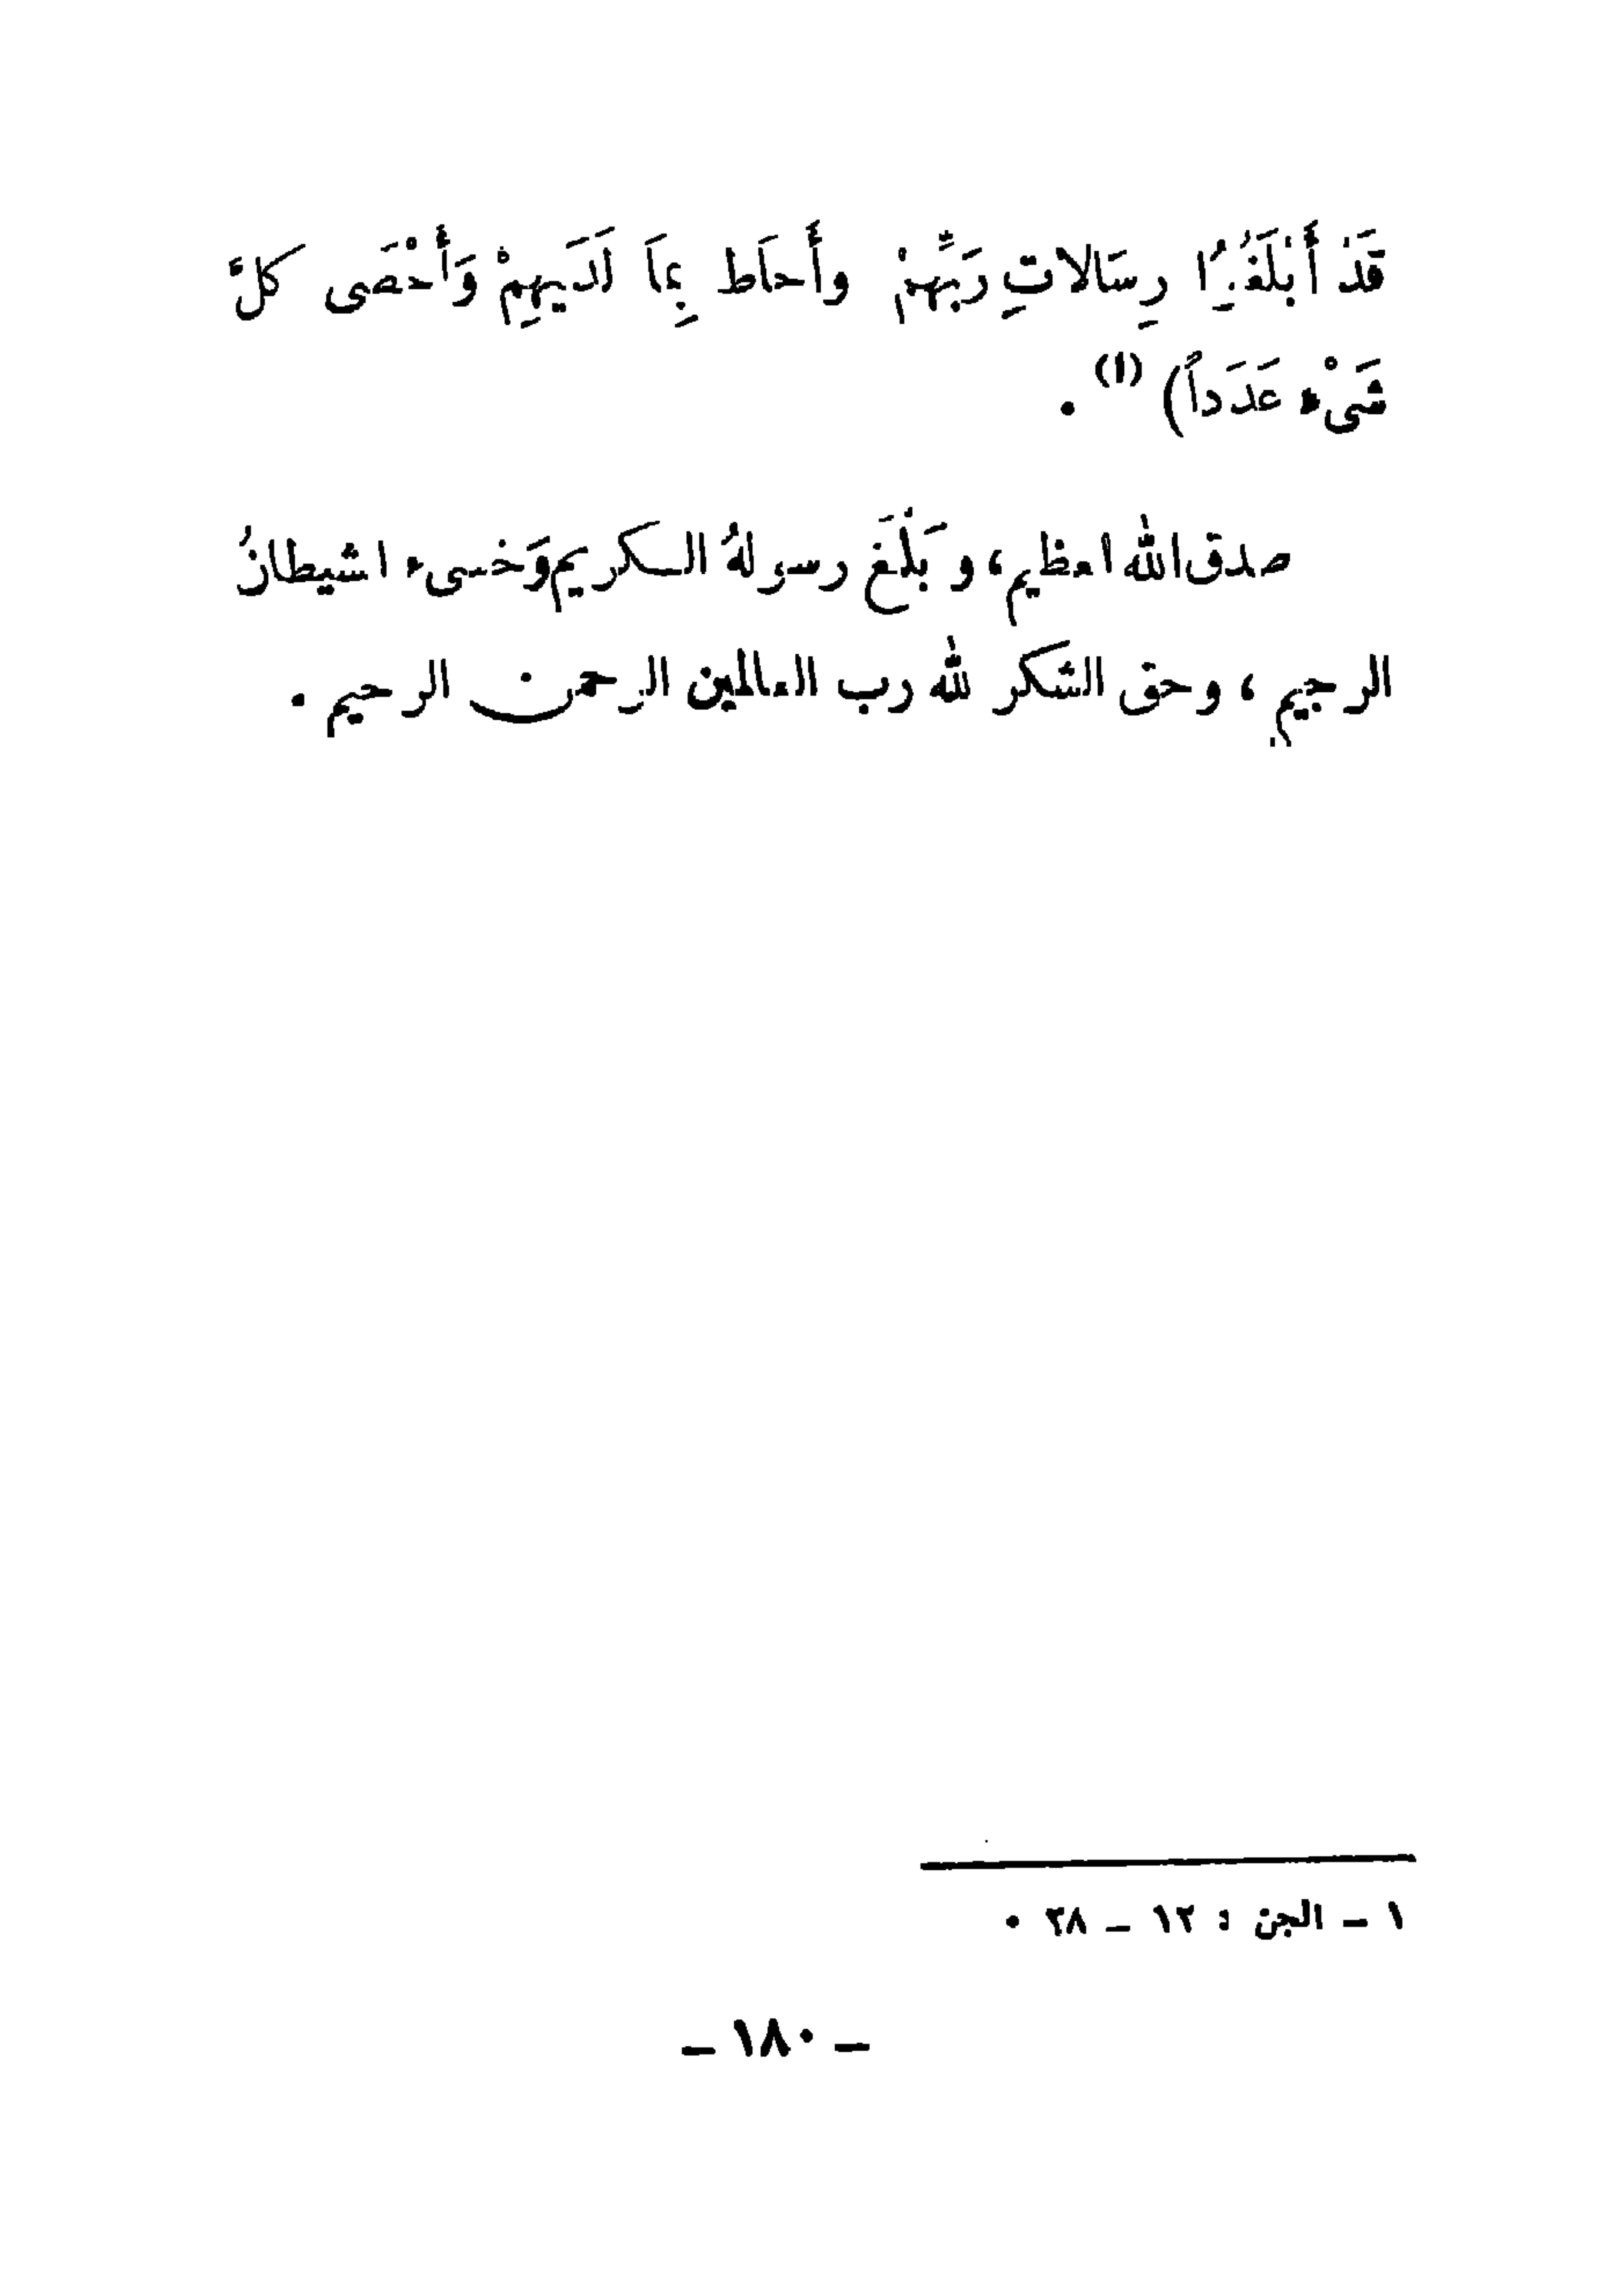 قَدْ أَبْلَغُوا رِسَالاتِ رَبِّهِمْ وأَحَاط بِمَا لَدَيهِمْ وَأَحْصَى كلَّ
شَيْء عَدَداً) (١) .
صدق الله العظيم، و بَلَّغَ رسولهُ الكريم وَخسىء الشيطانُ
الرجيم ، وحق الشكر لله رب العالمين الرحمن الرحيم .
١ - الجن : ١٣ - ٢٨ .
- ١٨٠ -